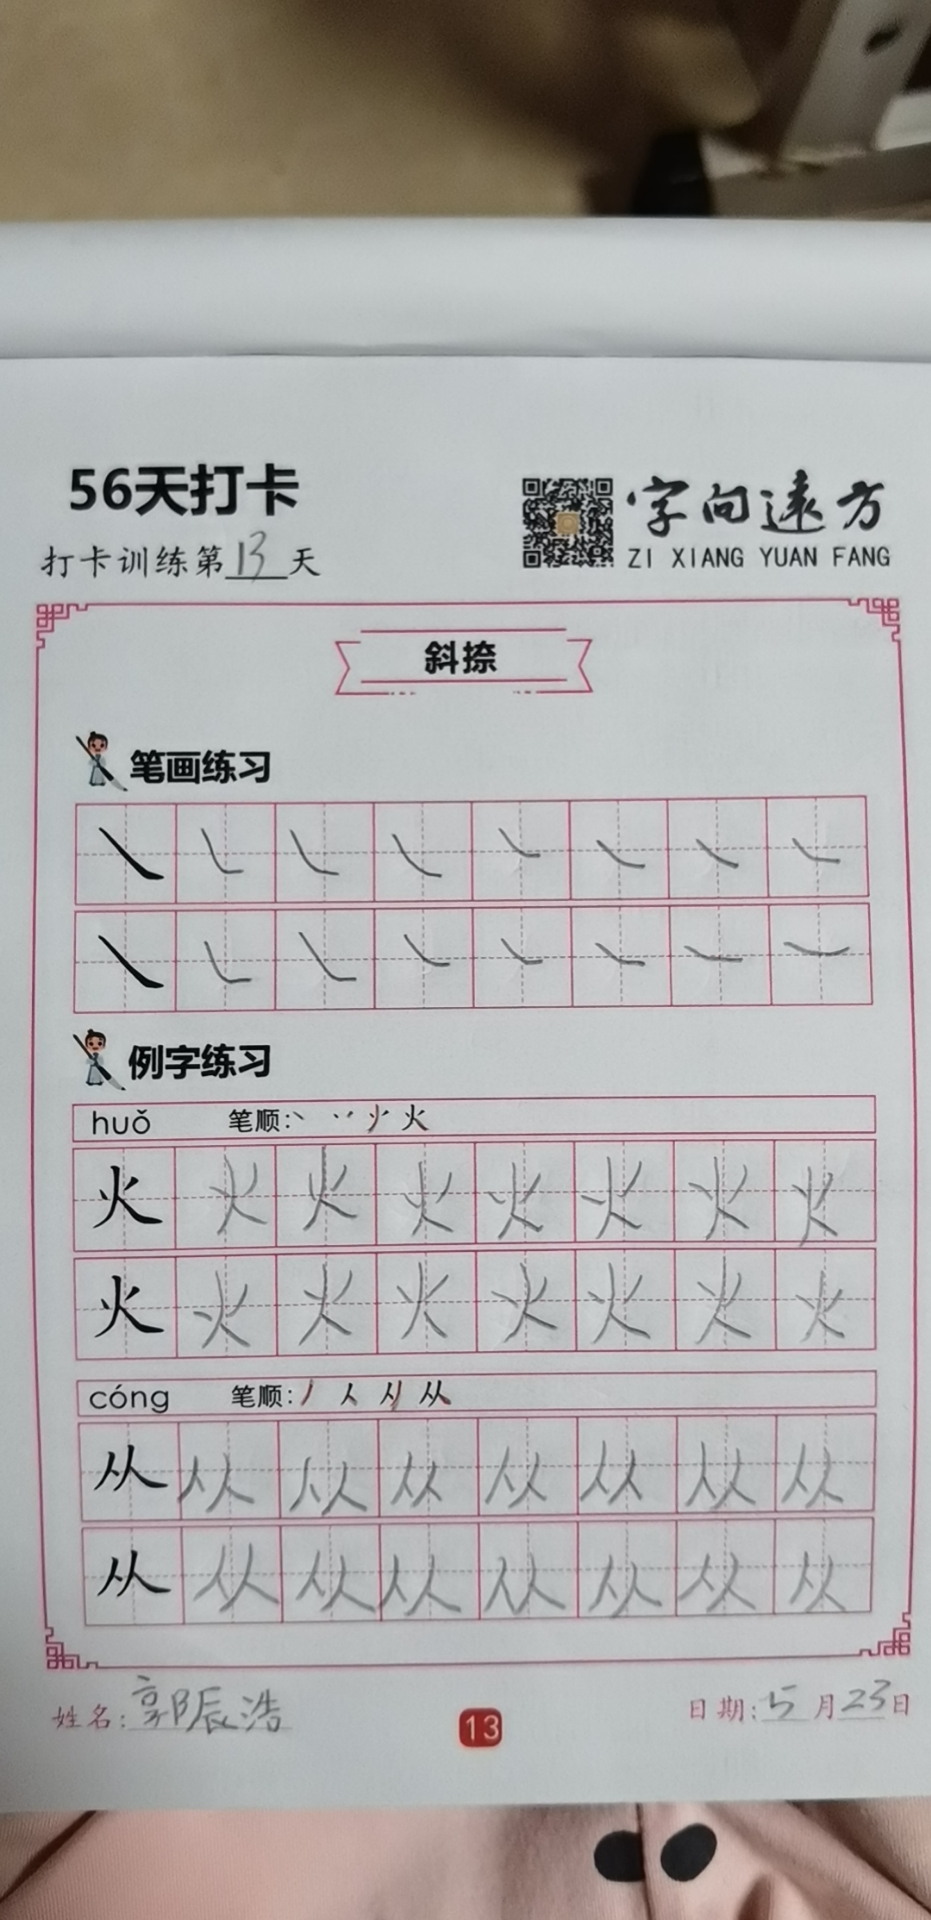 56天打卡
字向遠方
打卡训练第13天
ZI XIANG YUAN FANG
斜捺
笔画练习
㇏ ㇏ ㇏ ㇏ ㇏ ㇏ ㇏ ㇏
㇏ ㇏ ㇏ ㇏ ㇏ ㇏ ㇏ ㇏
例字练习
huǒ 笔顺:丶 丷 火
火 火 火 火 火 火 火 火
火 火 火 火 火 火 火 火
cóng 笔顺:丿 人 从
从 从 从 从 从 从 从 从
从 从 从 从 从 从 从 从
姓名:郭辰浩
13
日期:5月23日